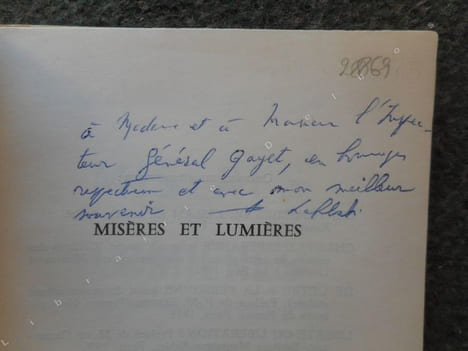 à Madame et à Monsieur l'Inspec-
teur Général Gayet, en hommage
respectueux et avec mon meilleur
souvenir
MISÈRES ET LUMIÈRES